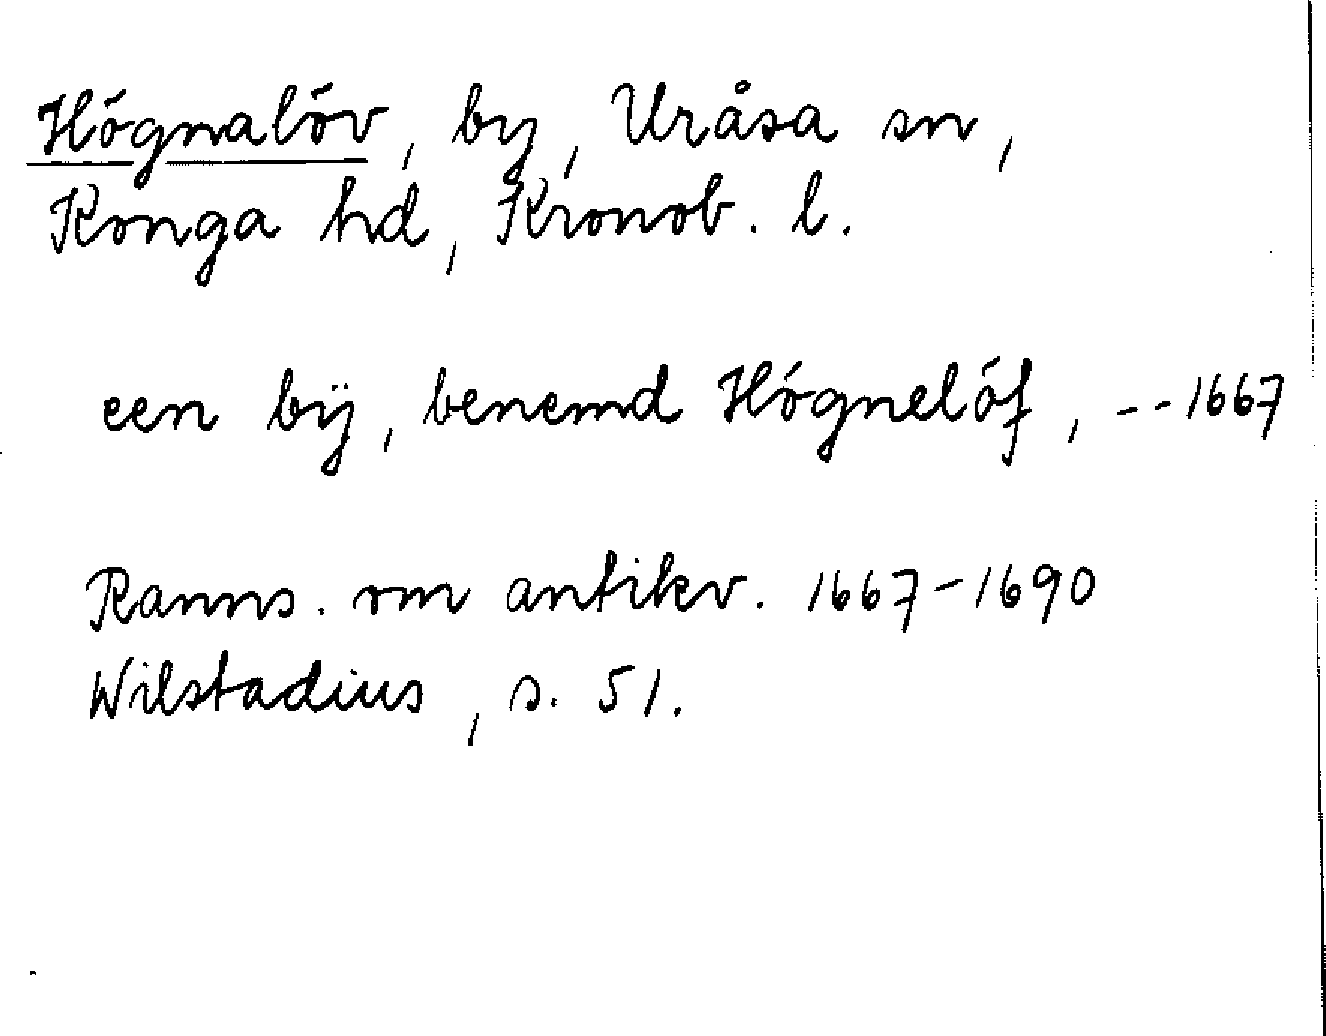 Högnalöv, by, Uråsa sn,
Konga hd, Kronob. l.
een bÿ, benemd Högnelöf, -- 1667
Ranns. om antikv. 1667-1690
Wilstadius, s. 51.